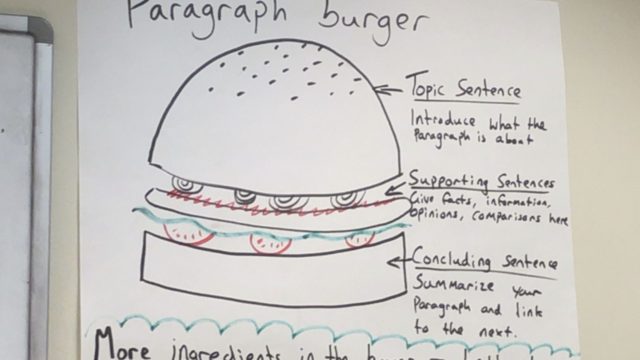 Paragraph burger
Topic Sentence
Introduce what the
Paragraph is about
Supporting Sentences
Give facts, information,
opinions, comparisons here
Concluding Sentence
Summarize your
Paragraph and link
to the next.
More ingredients in the burger